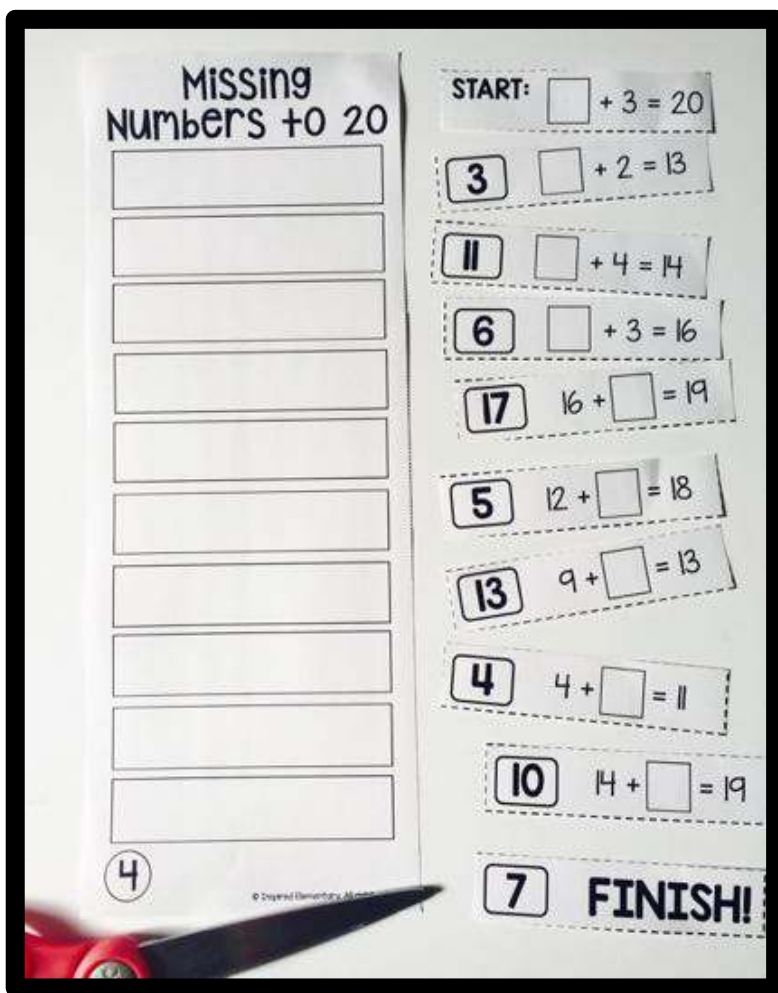 Missing
Numbers to 20
4
© Inspired Elementary
START: □ + 3 = 20
3 □ + 2 = 13
11 □ + 4 = 14
6 □ + 3 = 16
17 16 + □ = 19
5 12 + □ = 18
13 9 + □ = 13
4 4 + □ = 11
10 14 + □ = 19
7 FINISH!